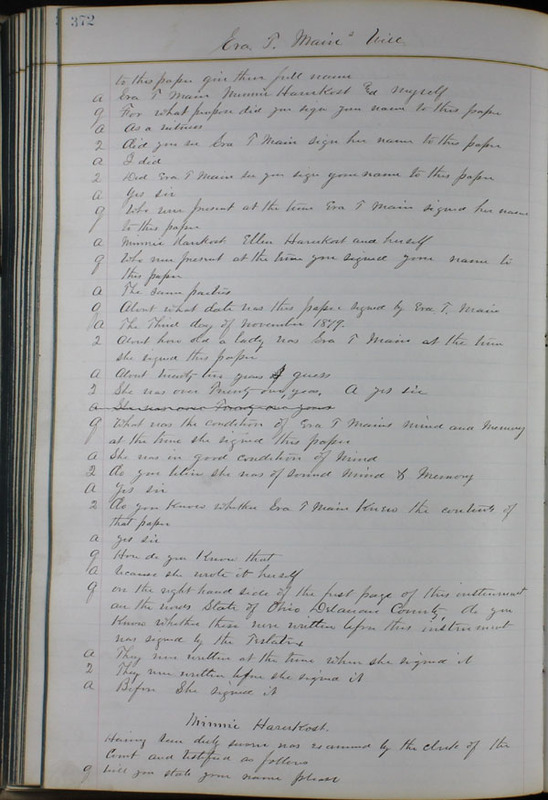 372
Eva T. Main's Will
to this paper give their full name
a Eva T Main Minnie Haverkost and myself
q For what purpose did you sign your name to this paper
a As a witness
2 Did you see Eva T Main sign her name to this paper
a I did
2 Did Eva T Main see you sign your name to this paper
a yes sir
q Who were present at the time Eva T Main signed her name
to this paper
a Minnie Haverkost Ellen Haverkost and herself
q Who were present at the time you signed your name to
this paper
a The same parties
q About what date was this paper signed by Eva T. Main
a The Third day of November 1879.
2 About how old a lady was Eva T Main at the time
she signed this paper
a About twenty years I guess
2 She was over Twenty one years, A yes sir
a She was over Twenty one years
q What was the condition of Eva T Mains mind and Memory
at the time she signed this paper
a She was in good condition of Mind
2 Do you believe she was of sound Mind & Memory
a Yes sir
2 Do you know whether Eva T Main Knew the contents of
that paper
a yes sir
q How do you Know that
a because she wrote it herself
q on the right hand side of the first page of this instrument
are the words State of Ohio Delaware County, do you
Know whether these were written before this instrument
was signed by the Testatrix
a They were written at the time when she signed it
2 They were written before she signed it
a Before She signed it
Minnie Haverkost.
Having been duly sworn was examined by the clerk of the
Court and testified as follows
q Will you state your name please